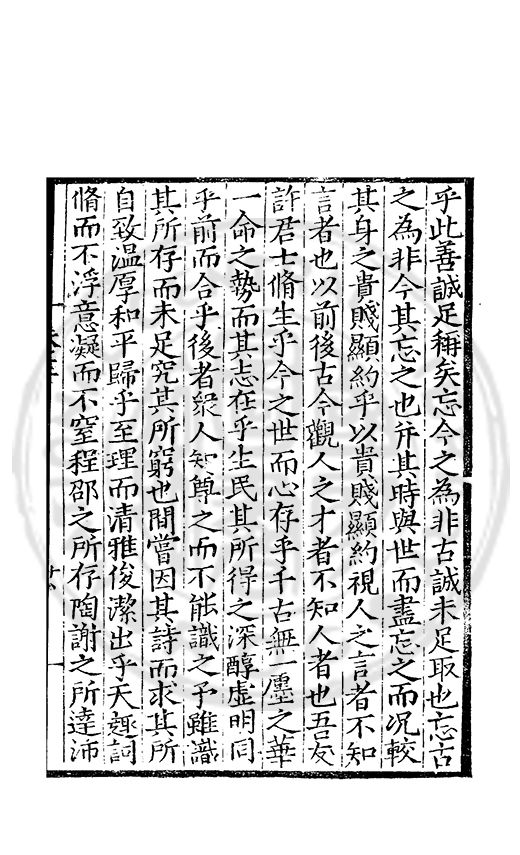 乎此善誠足稱矣忘今之為非古誠未足取也忘古
之為非今其忘之也并其時與世而盡忘之而况較
其身之貴賤顯約乎以貴賤顯約視人之言者不知
言者也以前後古今觀人之才者不知人者也吾友
許君士脩生乎今之世而心存乎千古無一廛之華
一命之勢而其志在乎生民其所得之深醇虛明同
乎前而合乎後者衆人知尊之而不能識之予雖識
其所存而未足究其所窮也間嘗因其詩而求其所
自致温厚和平歸乎至理而清雅俊潔出乎天趣詞
脩而不浮意凝而不窒程邵之所存陶謝之所達沛